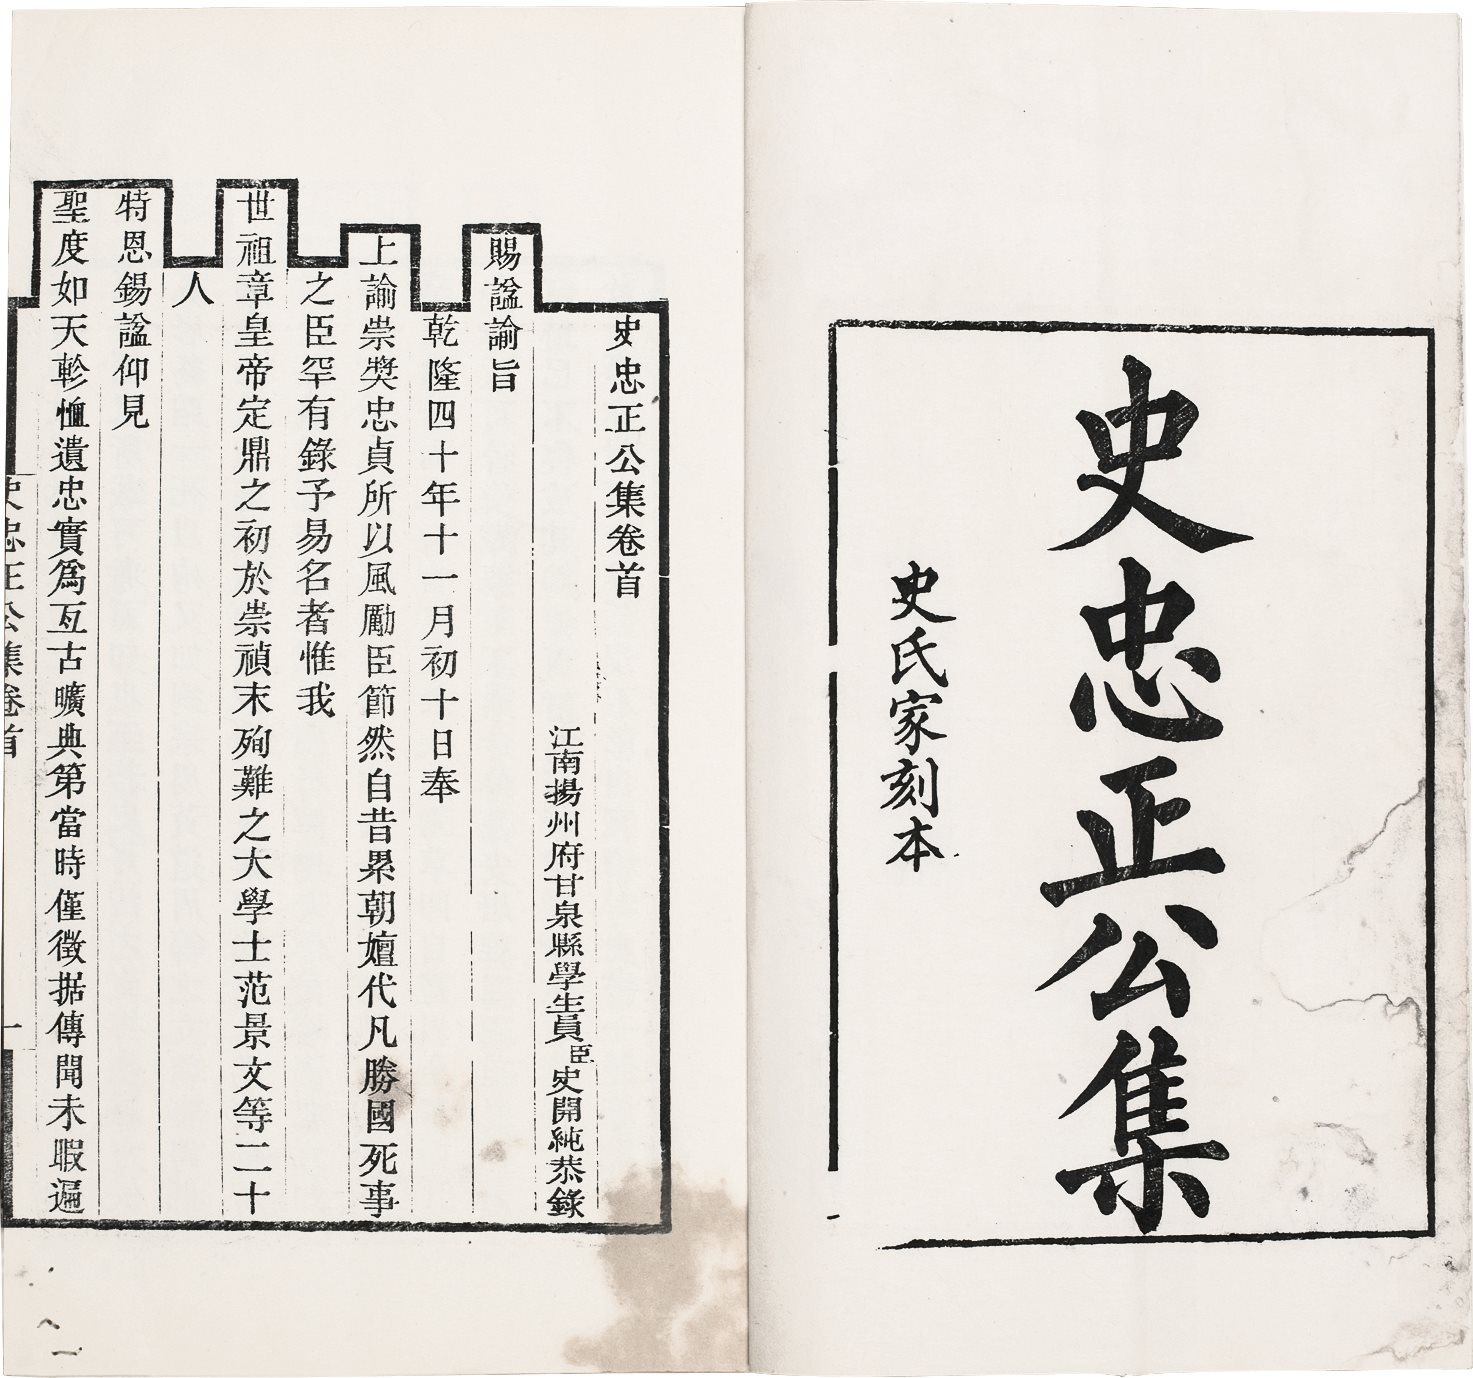 史忠正公集
史氏家刻本
史忠正公集卷首
江南揚州府甘泉縣學生員臣史開純恭錄
賜諡諭旨
乾隆四十年十一月初十日奉
上諭崇獎忠貞所以風勵臣節然自昔累朝嬗代凡勝國死事
之臣罕有錄予易名者惟我
世祖章皇帝定鼎之初於崇禎末殉難之大學士范景文等二十
人
特恩錫諡仰見
聖度如天軫恤遺忠實爲亙古曠典第當時僅徵據傳聞未暇遍
史忠正公集卷首
一